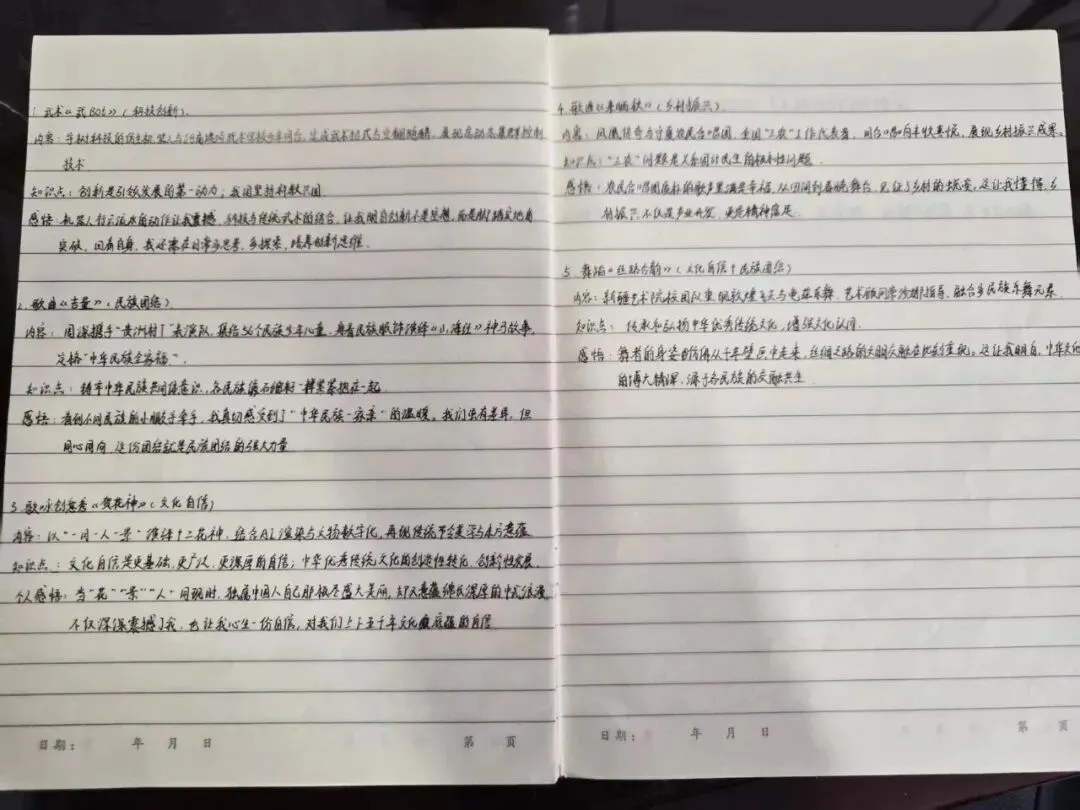 1. 武术《武BOt》(科技创新).
内容:宇树科技的仿生机器人与河南塔沟武术学校少年同台,完成武术招式与空翻跑酷,展现高动态集群控制
技术.
知识点:创新是引领发展的第一动力,我国坚持科教兴国.
感悟:机器人行云流水的动作让我震撼,科技与传统武术的结合,让我明白创新不是空想,而是脚踏实地的
突破,回看自身,我还需在日常多思考,多探索,培养创新思维.
2. 歌曲《吉量》(民族团结).
内容:周深携手"贵州村T"表演队,集结56个民族少年儿童,身着民族服饰演绎《山海经》神马故事,
定格"中华民族全家福".
知识点:铸牢中华民族共同体意识,各民族像石榴籽一样紧紧抱在一起
感悟:看到不同民族的小朋友手牵手,我真切感受到了"中华民族一家亲"的温暖。我们虽有差异,但
同心同向,这份团结就是民族团结的强大力量
3. 歌咏创意秀《贺花神》(文化自信)
内容:以"一月一人一景"演绎十二花神,结合AI渲染与文物数字化,再现传统节令美学与东方意蕴
知识点:文化自信是更基础,更广泛,更深厚的自信;中华优秀传统文化的创造性转化,创新性发展.
个人感悟:当"花""景""人"同现时,独属中国人自己那极尽盛大美丽,却又意蕴绵长深厚的中式浪漫,
不仅深深震撼了我,也让我心生一份自信,对我们上下五千年文化底蕴的自信
日期: 年 月 日 第 页
4. 歌曲《来晒秋》(乡村振兴).
内容:凤凰传奇与宁夏农民合唱团,全国"三农"工作代表者,同台唱响丰收喜悦,展现乡村振兴成果.
知识点:"三农"问题是关系国计民生的根本性问题.
感悟:农民合唱团质朴的歌声里满是幸福,从田间到春晚舞台,见证了乡村的蜕变,这让我懂得,乡
村振兴不仅是产业开发,更是精神富足.
5. 舞蹈《丝路古韵》(文化自信+民族团结)
内容:新疆艺术院校团队重现敦煌飞天与龟兹乐舞,艺术顾问常沙娜指导,融合多民族乐舞元素.
知识点:传承和弘扬中华优秀传统文化,增强文化认同.
感悟:舞者的身姿仿佛从千年壁画中走来,丝绸之路的文明交融在此刻重现。这让我明白,中华文化
的博大精深,源于各民族的交融共生.
日期: 年 月 日 第 页